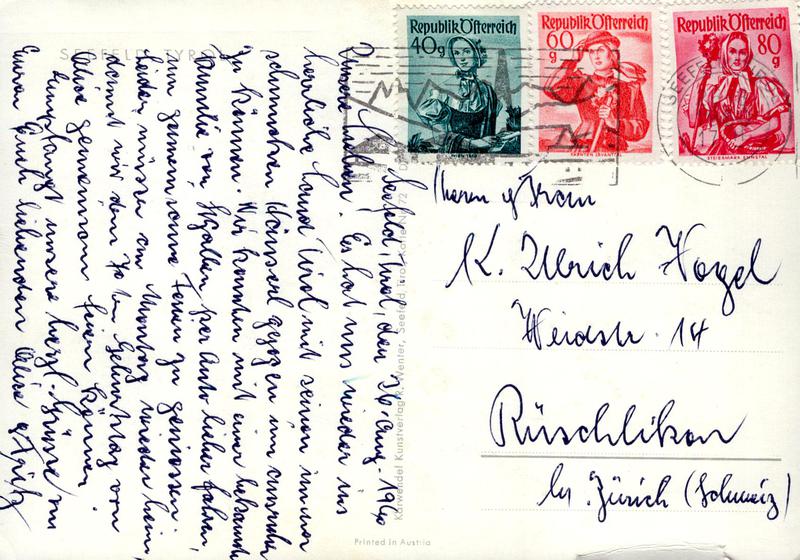 SEEFELD TYROL
Seefeld, Tirol, den 26. Aug. 196
Unsere Lieben! Es hat uns wieder ins
herrliche Land Tirol mit seinen immer
schmucken gezogen um
zu können. Wir konnten mit einer bekannten
Familie von St. Gallen per Auto hieher fahren,
um gemeinsame Ferien zu geniessen.
Leider müssen am Montag wieder heim,
damit wir den Geburtstag von
Alice gemeinsam feiern können.
Empfangt unsere herzl. Grüsse von
Euren Euch liebenden Alice & Fritz
Karwendel Kunstverlag K. Wenter, Seefeld, Tirol, Karte Nr. 72
Printed in Austria
Republik Österreich
40g
WIEN 1840
Republik Österreich
60
g
KÄRNTEN LAVANTTAL
Republik Österreich
80
g
STEIERMARK ENNSTAL
SEEFELD
Herrn & Frau
K. Ulrich Vogel
Weidstr. 14
Rüschlikon
bei Zürich (Schweiz)